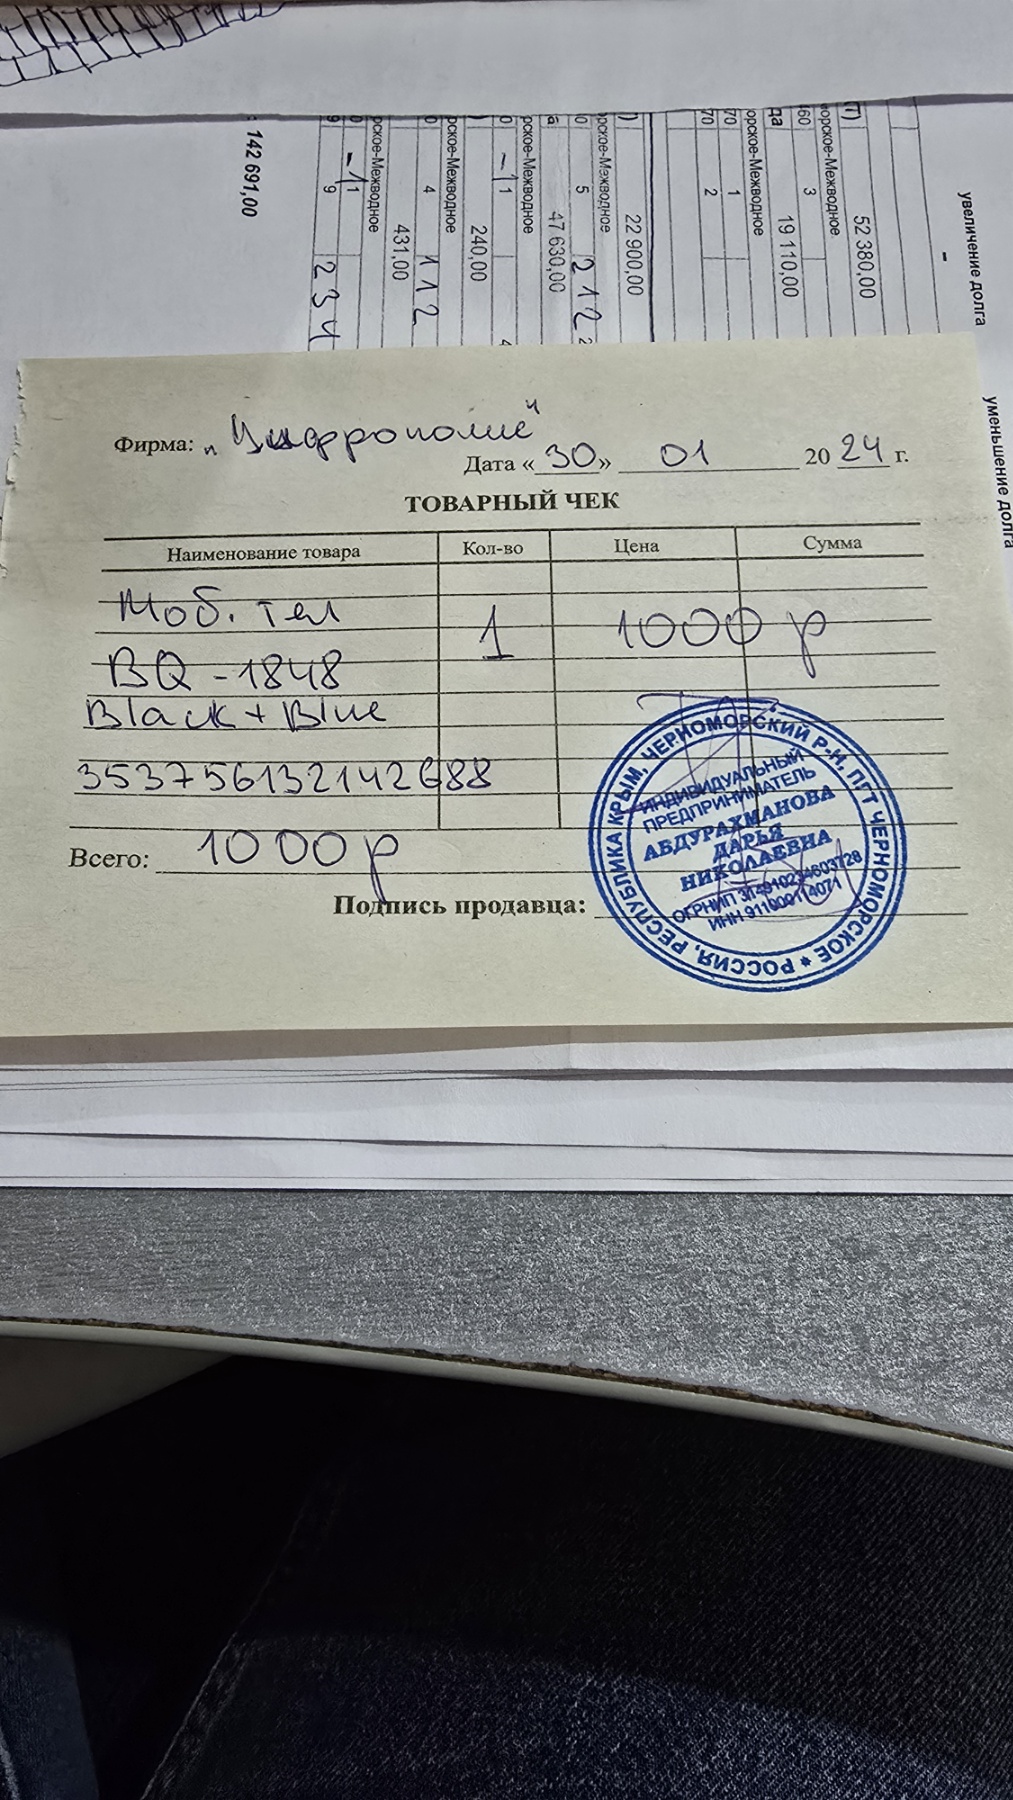 увеличение долга
-
уменьшение долга
52 380,00
орское-Межводное.
3
19 110,00
орское-Межводное
1
2
22 900,00
рское-Межводное
5
212
47 630,00
рское-Межводное
-1
1
240,00
рское-Межводное
4
112
431,00
рское-Межводное
-1
1
9
234
: 142 691,00
Фирма: „Цифрополис“
Дата «30» 01 2024 г.
ТОВАРНЫЙ ЧЕК
Наименование товара Кол-во Цена Сумма
Моб. тел 1 1000 р
BQ - 1848
Black + Blue
353756132142688
Всего: 1000 р
Подпись продавца:
РОССИЯ, РЕСПУБЛИКА КРЫМ, ЧЕРНОМОРСКИЙ Р-Н, ПГТ ЧЕРНОМОРСКОЕ *
ИНДИВИДУАЛЬНЫЙ
ПРЕДПРИНИМАТЕЛЬ
АБДУРАХМАНОВА
ДАРЬЯ
НИКОЛАЕВНА
ОГРНИП
ИНН